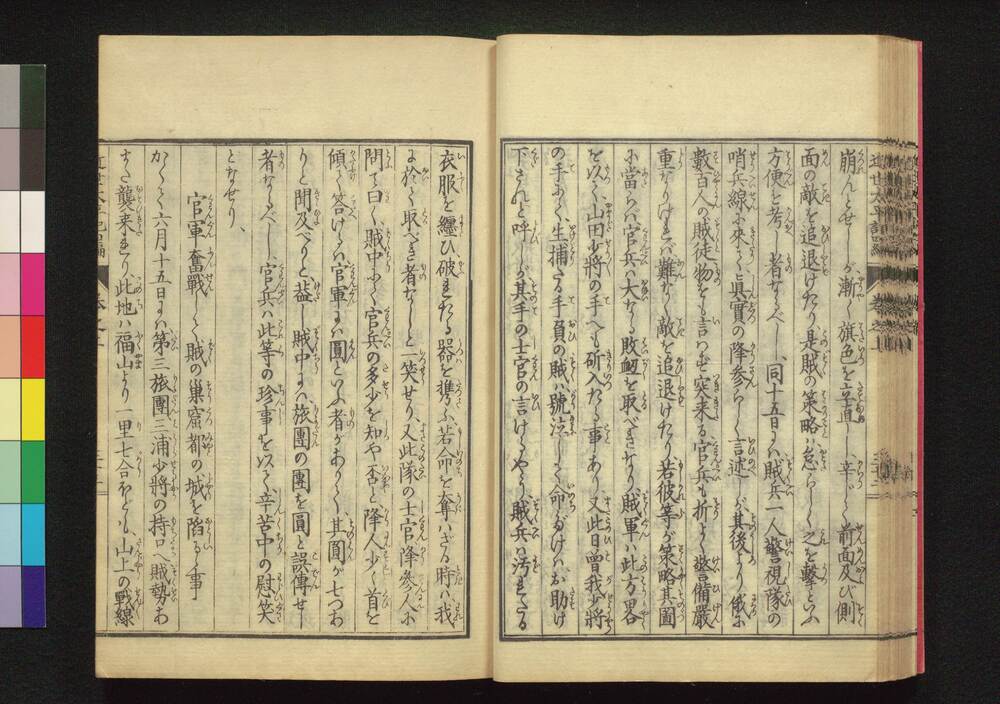 崩んとせしが漸く旗色を立直し、辛じて前面及び側
面の敵を追退けたり是賊の策略ハ怠らして之を撃といふ
方便を考し者なるべし、同十五日にハ賊兵一人警視隊の
哨兵線に來り、眞實の降参らしく言述しが、其後より俄に
數百人の賊徒物をも言はず突来る官兵も折よく警備嚴
重なりけれバ難なく敵を追退けたり、若彼等が策略其圖
に當らバ官兵ハ大なる敗衂を取べきなり賊軍ハ此方畧
を以て山田少將の手へも斫入たる事あり又此日曽我少將
の手にて、生捕たる手負の賊ハ號泣して命だけハお助け
下されと呼しが其手の士官の言けるやう、賊兵ハ汚れたる
衣服を纒ひ破れたる器を携ふ若命を奪ハざる時ハ我
に於て取べき者なしと一笑せり又此隊の士官降參人に
問て曰く、賊中にて官兵の多少を知や否と降人少く首を
傾て答けるハ官軍にハ圓といふ者がありて、其圓が七つあ
りと聞及べりと、蓋し賊中にてハ旅團の團を圓と誤傳せし
者なるべし、官兵ハ此等の珍事を以て辛苦中の慰笑
となせり、
官軍奮戰して賊の巣窟都の城を陥る事
かくて六月十五日にハ第三旅團三浦少將の持口へ賊勢あ
また襲来れり、此地ハ福山より一里七合なれども、山上の戰線